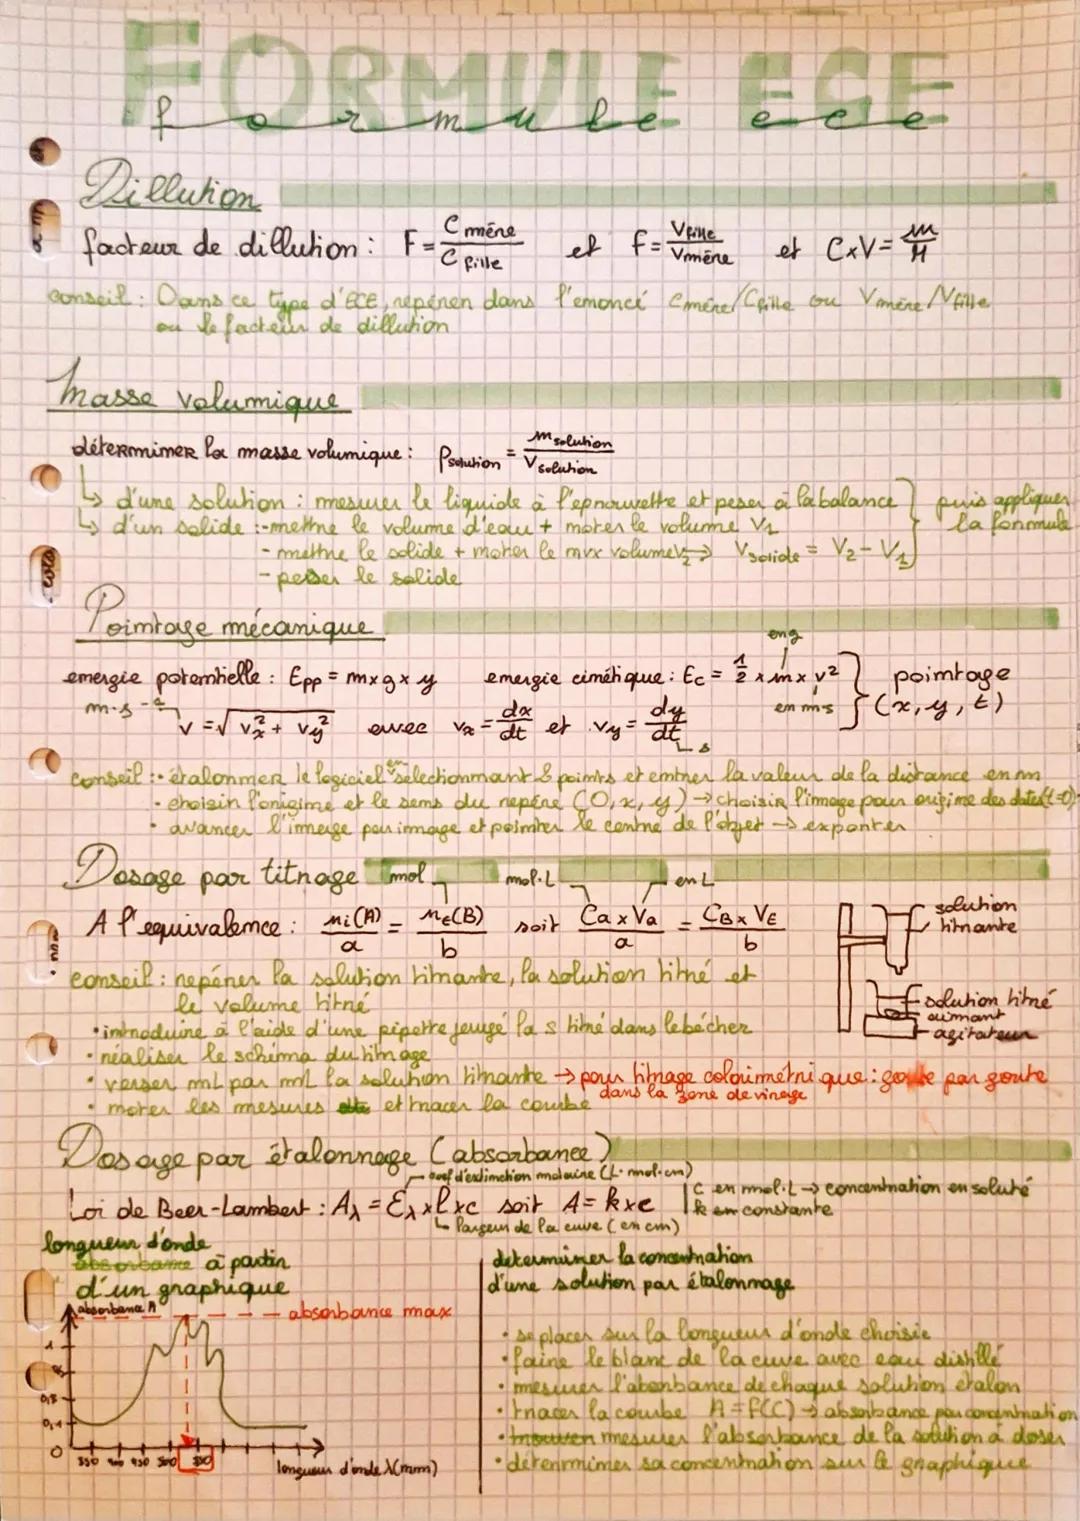 FORMULE ECE
formule ece
Dillution
facteur de dillution : F = C mère / C fille et F = V fille / V mère et C x V = m / M
conseil : Dans ce type d'ECE, repérer dans l'énoncé Cmère/Cfille ou Vmère/Vfille
ou le facteur de dillution
Masse volumique
déterminer la masse volumique : ρsolution = m solution / V solution
↳ d'une solution : mesurer le liquide à l'éprouvette et peser à la balance } puis appliquer
↳ d'un solide : - mettre le volume d'eau + noter le volume V1 la formule
- mettre le solide + noter le nvx volume V2 → Vsolide = V2 - V1
- peser le solide
Pointage mécanique
en g
energie potentielle : Epp = m x g x y energie cinétique : Ec = 1/2 x m x v² } pointage
m·s⁻¹ en m·s (x, y, t)
v = √ vx² + vy² avec vx = dx/dt et vy = dy/dt
s
conseil : • étalonner le logiciel en sélectionnant 2 points et entrer la valeur de la distance en m
• choisir l'origine et le sens du repère (O, x, y) → choisir l'image pour origine des dates (t=0)
• avancer l'image par image et pointer le centre de l'objet → exporter
Dosage par titrage mol mol·L en L
A l'équivalence : ni(A) / a = nE(B) / b soit Ca x Va / a = CB x VE / b
solution
titrante
conseil : repérer la solution titrante, la solution titré et
le volume titré
solution titré
aimant
agitateur
• introduire à l'aide d'une pipette jeugé la s titré dans le bécher
• réaliser le schéma du titrage
• verser mL par mL la solution titrante → pour titrage colorimétrique : goutte par goutte
dans la zone de virage
• noter les mesures et tracer la courbe
Dosage par étalonnage (absorbance)
coef d'extinction molaire (L·mol·cm)
Loi de Beer-Lambert : Aλ = Ɛλ x l x c soit A = k x c
c en mol·L → concentration en soluté
k en constante
↳ largeur de la cuve (en cm)
longueur d'onde
absorbance à partir
d'un graphique
absorbance A
absorbance max
1
0,5
0,1
0
350 400 450 500 550
longueur d'onde λ(nm)
determiner la concentration
d'une solution par étalonnage
• se placer sur la longueur d'onde choisie
• faire le blanc de la cuve avec eau distillé
• mesurer l'absorbance de chaque solution étalon
• tracer la courbe A = f(C) → absorbance par concentration
• trouver mesurer l'absorbance de la solution à doser
• déterminer sa concentration sur le graphique